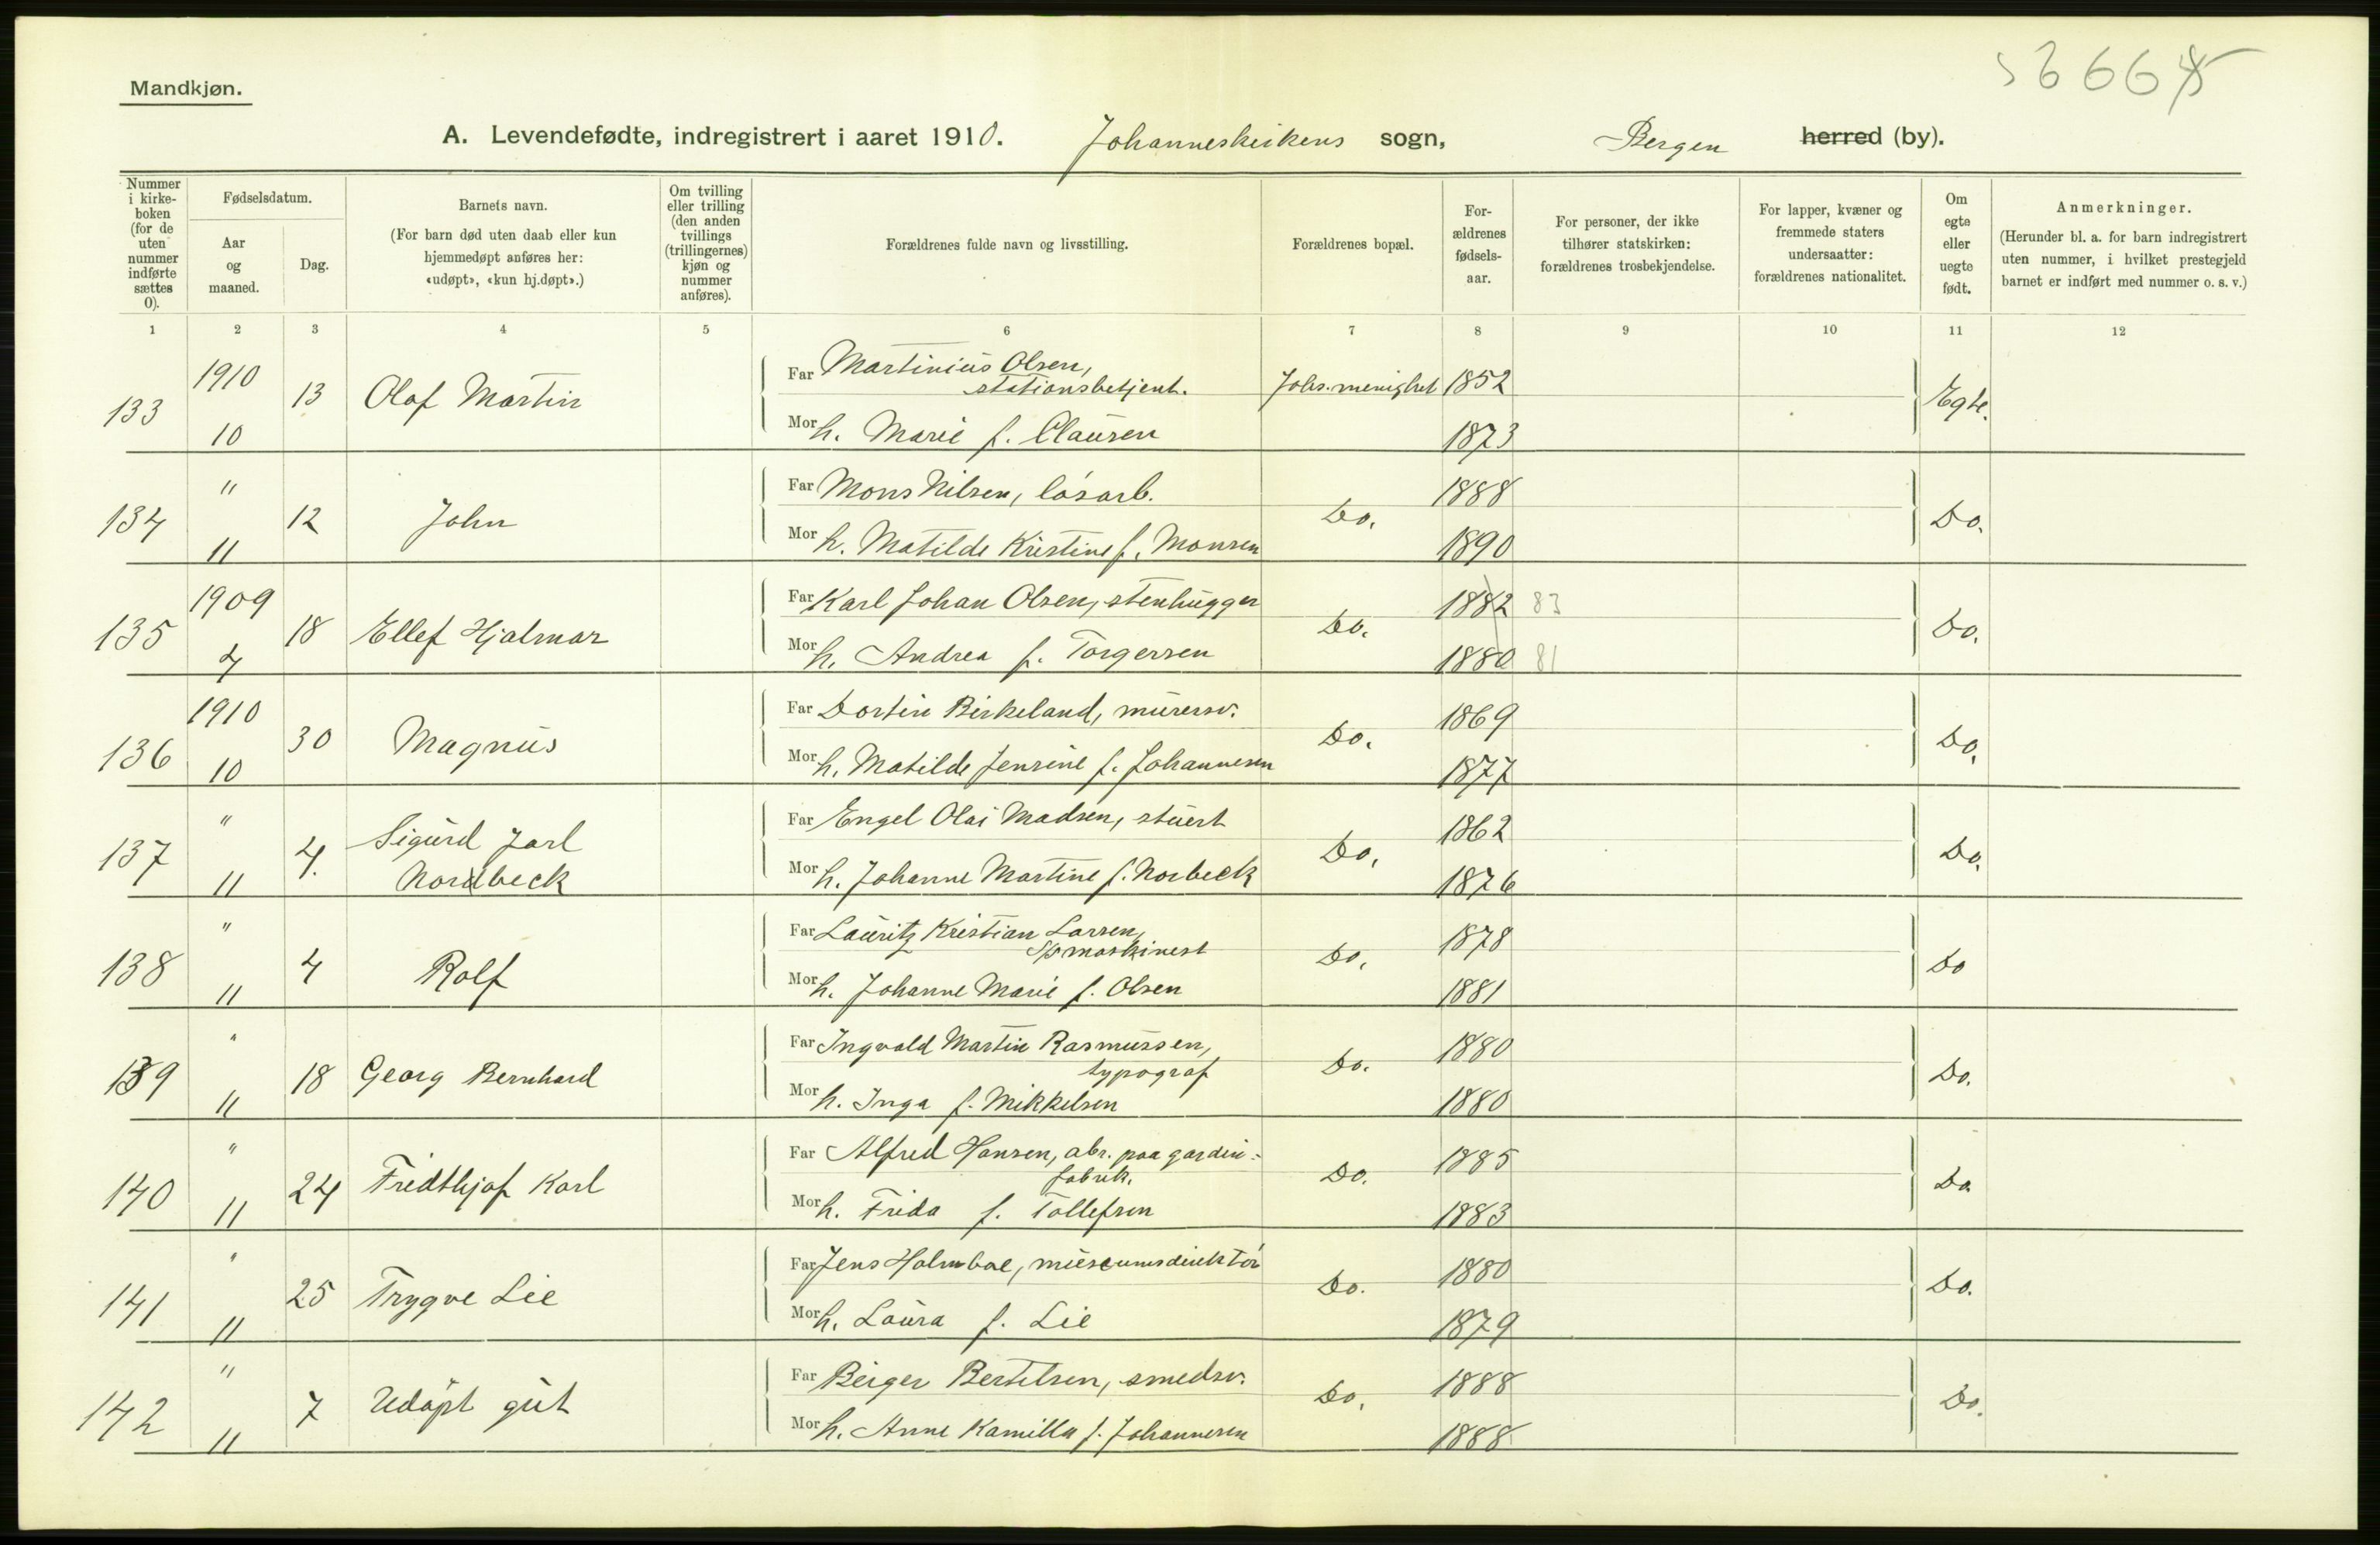 Mandkjøn.
A. Levendefødte, indregistrert i aaret 1910. Johanneskirkens sogn, Bergen herred (by).
Nummer i kirkeboken (for de uten nummer indførte sættes 0).
Fødselsdatum.
Aar og maaned.
Dag.
Barnets navn.
(For barn død uten daab eller kun hjemmedøpt anføres her: «udøpt», «kun hj.døpt».)
Om tvilling eller trilling (den anden tvillings (trillingernes) kjøn og nummer anføres).
Forældrenes fulde navn og livsstilling.
Forældrenes bopæl.
Forældrenes fødselsaar.
For personer, der ikke tilhører statskirken: forældrenes trosbekjendelse.
For lapper, kvæner og fremmede staters undersaatter: forældrenes nationalitet.
Om egte eller uegte født.
Anmerkninger.
(Herunder bl. a. for barn indregistrert uten nummer, i hvilket prestegjeld barnet er indført med nummer o. s. v.)
1 2 3 4 5 6 7 8 9 10 11 12
133 1910 10 13 Olaf Martin Far Martinius Olsen, stationsbetjent. Johs. menighet 1852 Egte.
Mor h. Marie f. Clausen 1873
134 " 11 12 John Far Mons Nilsen, løsarb. Do. 1888 Do.
Mor h. Matilde Kristine f. Monsen 1890
135 1909 4 18 Ellef Hjalmar Far Karl Johan Olsen, stenhugger Do. 1882 83 Do.
Mor h. Andrea f. Torgersen 1880 81
136 1910 10 30 Magnus Far Dortin Birkeland, murersv. Do. 1869 Do.
Mor h. Matilde Jensine f. Johannesen 1877
137 " 11 4. Sigurd Jarl Far Engel Olai Madsen, stuert Do. 1862 Do.
Nordbeck Mor h. Johanne Martine f. Norbeck 1876
138 " 11 4 Rolf Far Lauritz Kristian Larsen, S/s maskinist Do. 1878 Do
Mor h. Johanne Marie f. Olsen 1881
139 " 11 18 Georg Bernhard Far Ingvald Martin Rasmussen, typograf Do. 1880 Do.
Mor h. Inga f. Mikkelsen 1880
140 " 11 24 Fridthjof Karl Far Alfred Hansen, abr. paa gardinfabrik. Do. 1885 Do.
Mor h. Frida f. Tollefsen 1883
141 " 11 25 Trygve Lie Far Jens Holmboe, museumsdirektør Do. 1880 Do.
Mor h. Laura f. Lie 1879
142 " 11 7 Udøpt gut Far Birger Bertelsen, smedsv. Do. 1888 Do.
Mor h. Anne Kamilla f. Johannesen 1888